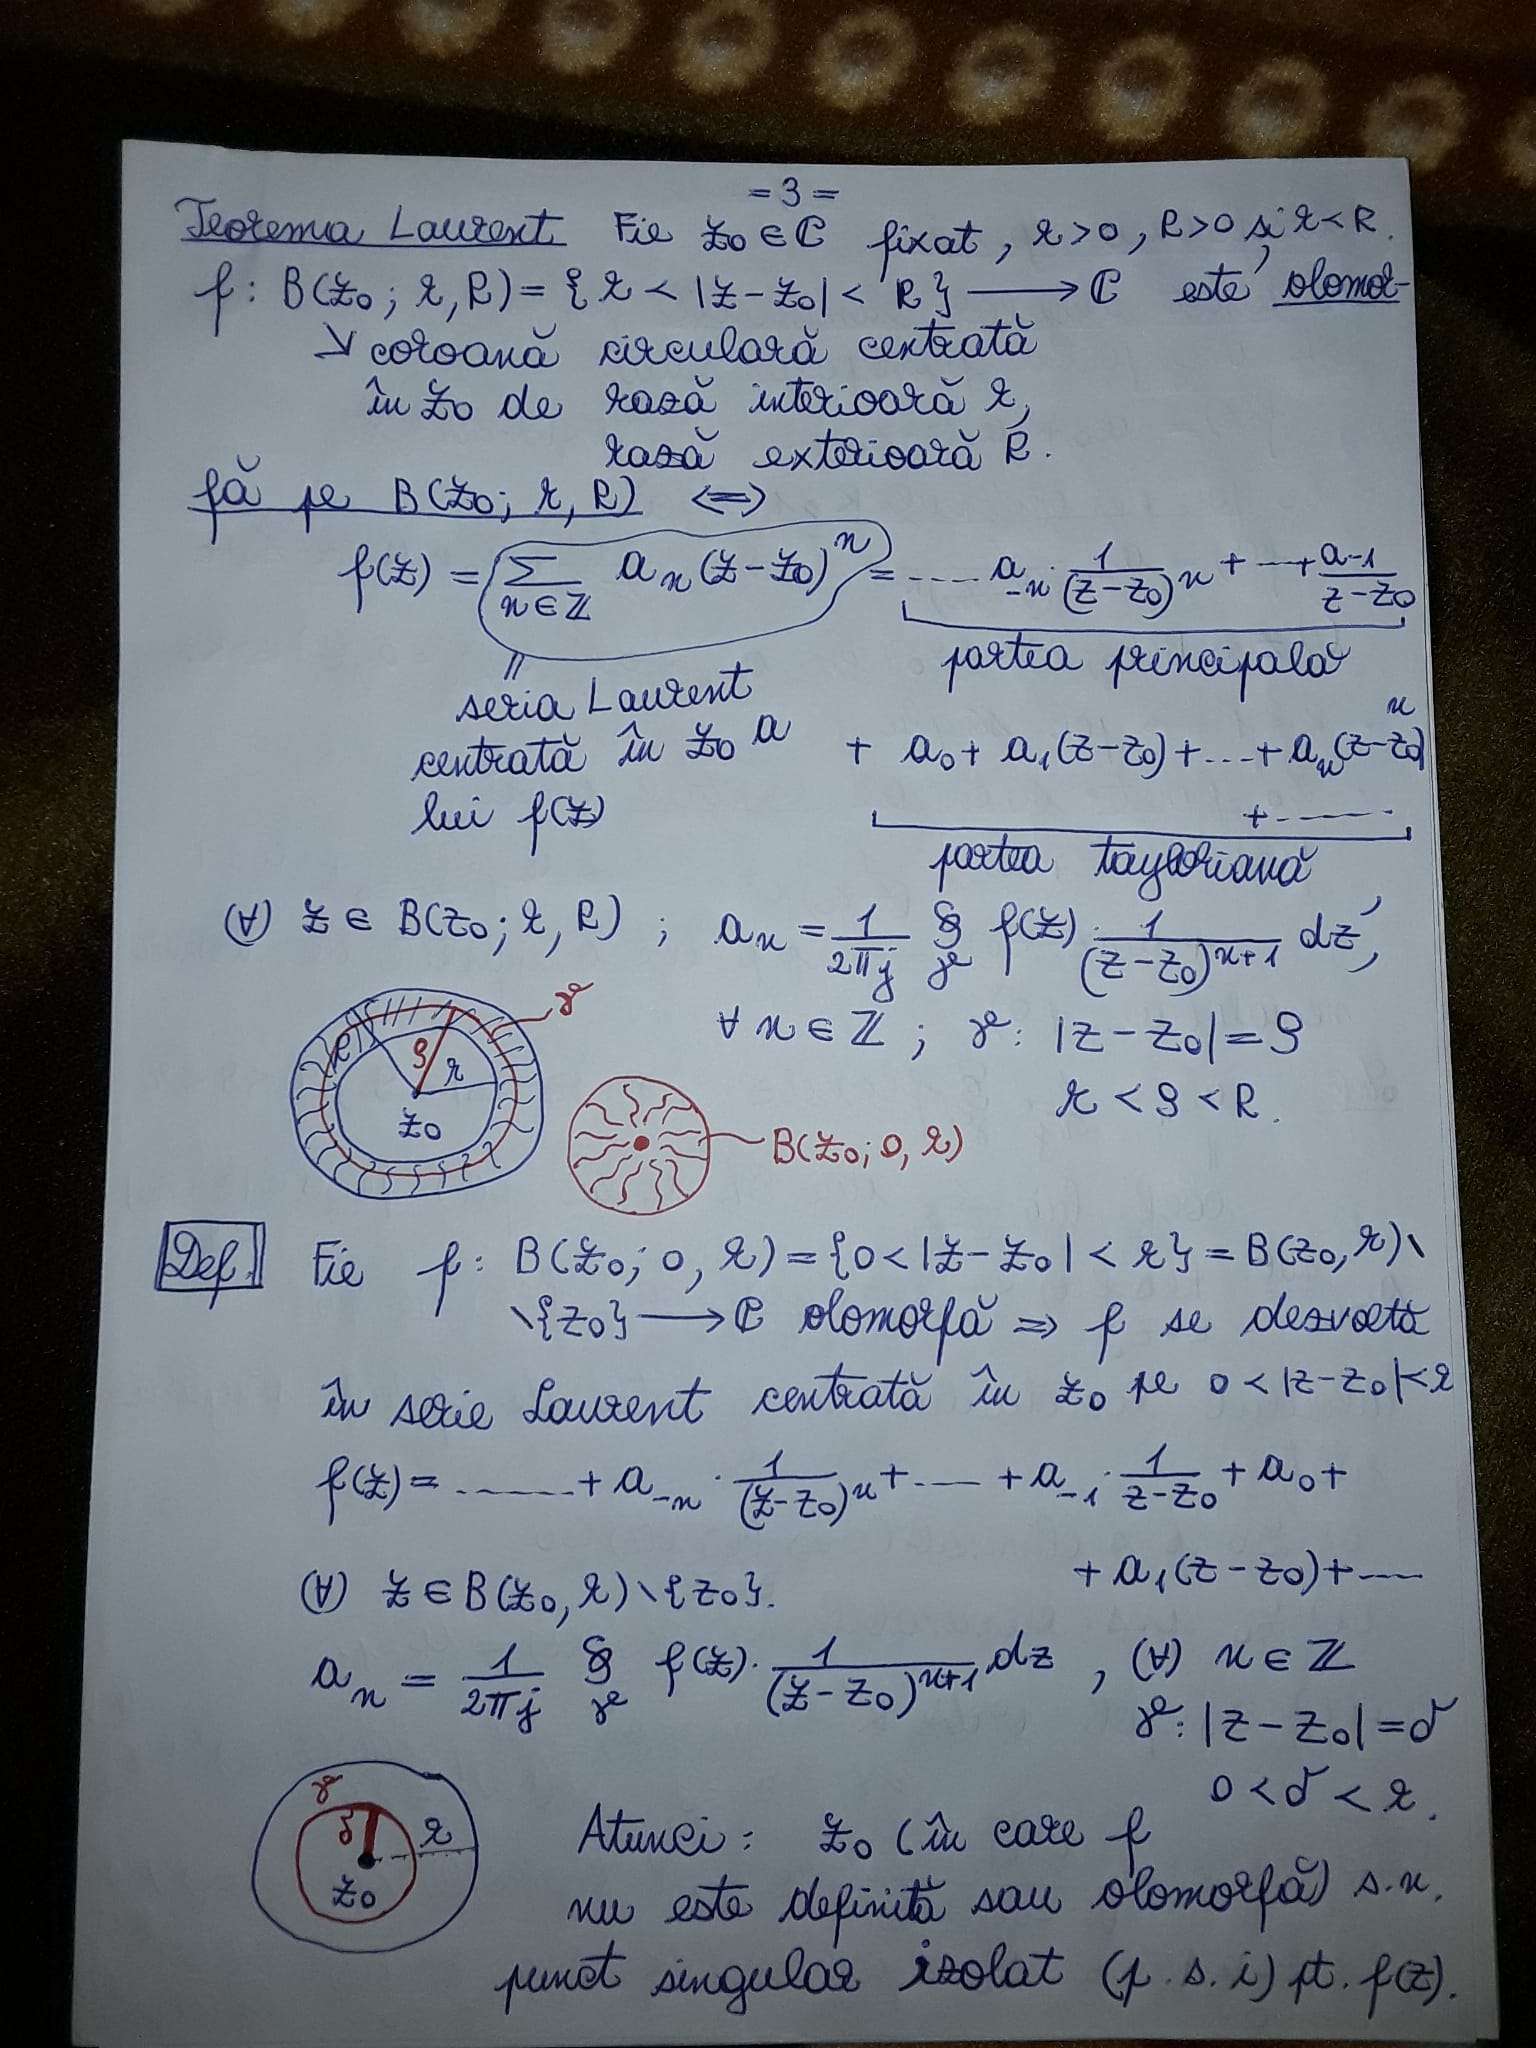 = 3 =
Teorema Laurent Fie z₀ ∈ ℂ fixat, r > 0, R > 0 și r < R.
f: B(z₀; r, R) = { r < |z - z₀| < R } ⟶ ℂ este olomor-
↘ coroană circulară centrată
în z₀ de rază interioară r,
rază exterioară R.
fă pe B(z₀; r, R) ⟺
f(z) = ∑_{n∈ℤ} a_n (z - z₀)^n = ..... a_{-n} · 1/(z - z₀)^n + ... + a_{-1}/(z - z₀)
partea principală
= seria Laurent
centrată în z₀ a
lui f(z)
+ a₀ + a₁(z - z₀) + ... + a_n(z - z₀)^n
+ .......
partea tayloriană
(∀) z ∈ B(z₀; r, R) ; a_n = 1/(2πj) ∮_γ f(z) · 1/(z - z₀)^{n+1} dz,
∀ n ∈ ℤ ; γ: |z - z₀| = ρ
r < ρ < R.
γ
R ρ r
z₀
B(z₀; 0, r)
Def. Fie f: B(z₀; 0, r) = {0 < |z - z₀| < r} = B(z₀, r) \
\ {z₀} ⟶ ℂ olomorfă ⇒ f se dezvoltă
în serie Laurent centrată în z₀ pe 0 < |z - z₀| < r
f(z) = ....... + a_{-n} · 1/(z - z₀)^n + .... + a_{-1} · 1/(z - z₀) + a₀ +
+ a₁(z - z₀) + ....
(∀) z ∈ B(z₀, r) \ {z₀}.
a_n = 1/(2πj) ∮_γ f(z) · 1/(z - z₀)^{n+1} dz , (∀) n ∈ ℤ
γ: |z - z₀| = δ
0 < δ < r.
γ
δ r
z₀
Atunci: z₀ (în care f
nu este definită sau olomorfă) s.n.
punct singular izolat (p.s.i) pt. f(z).